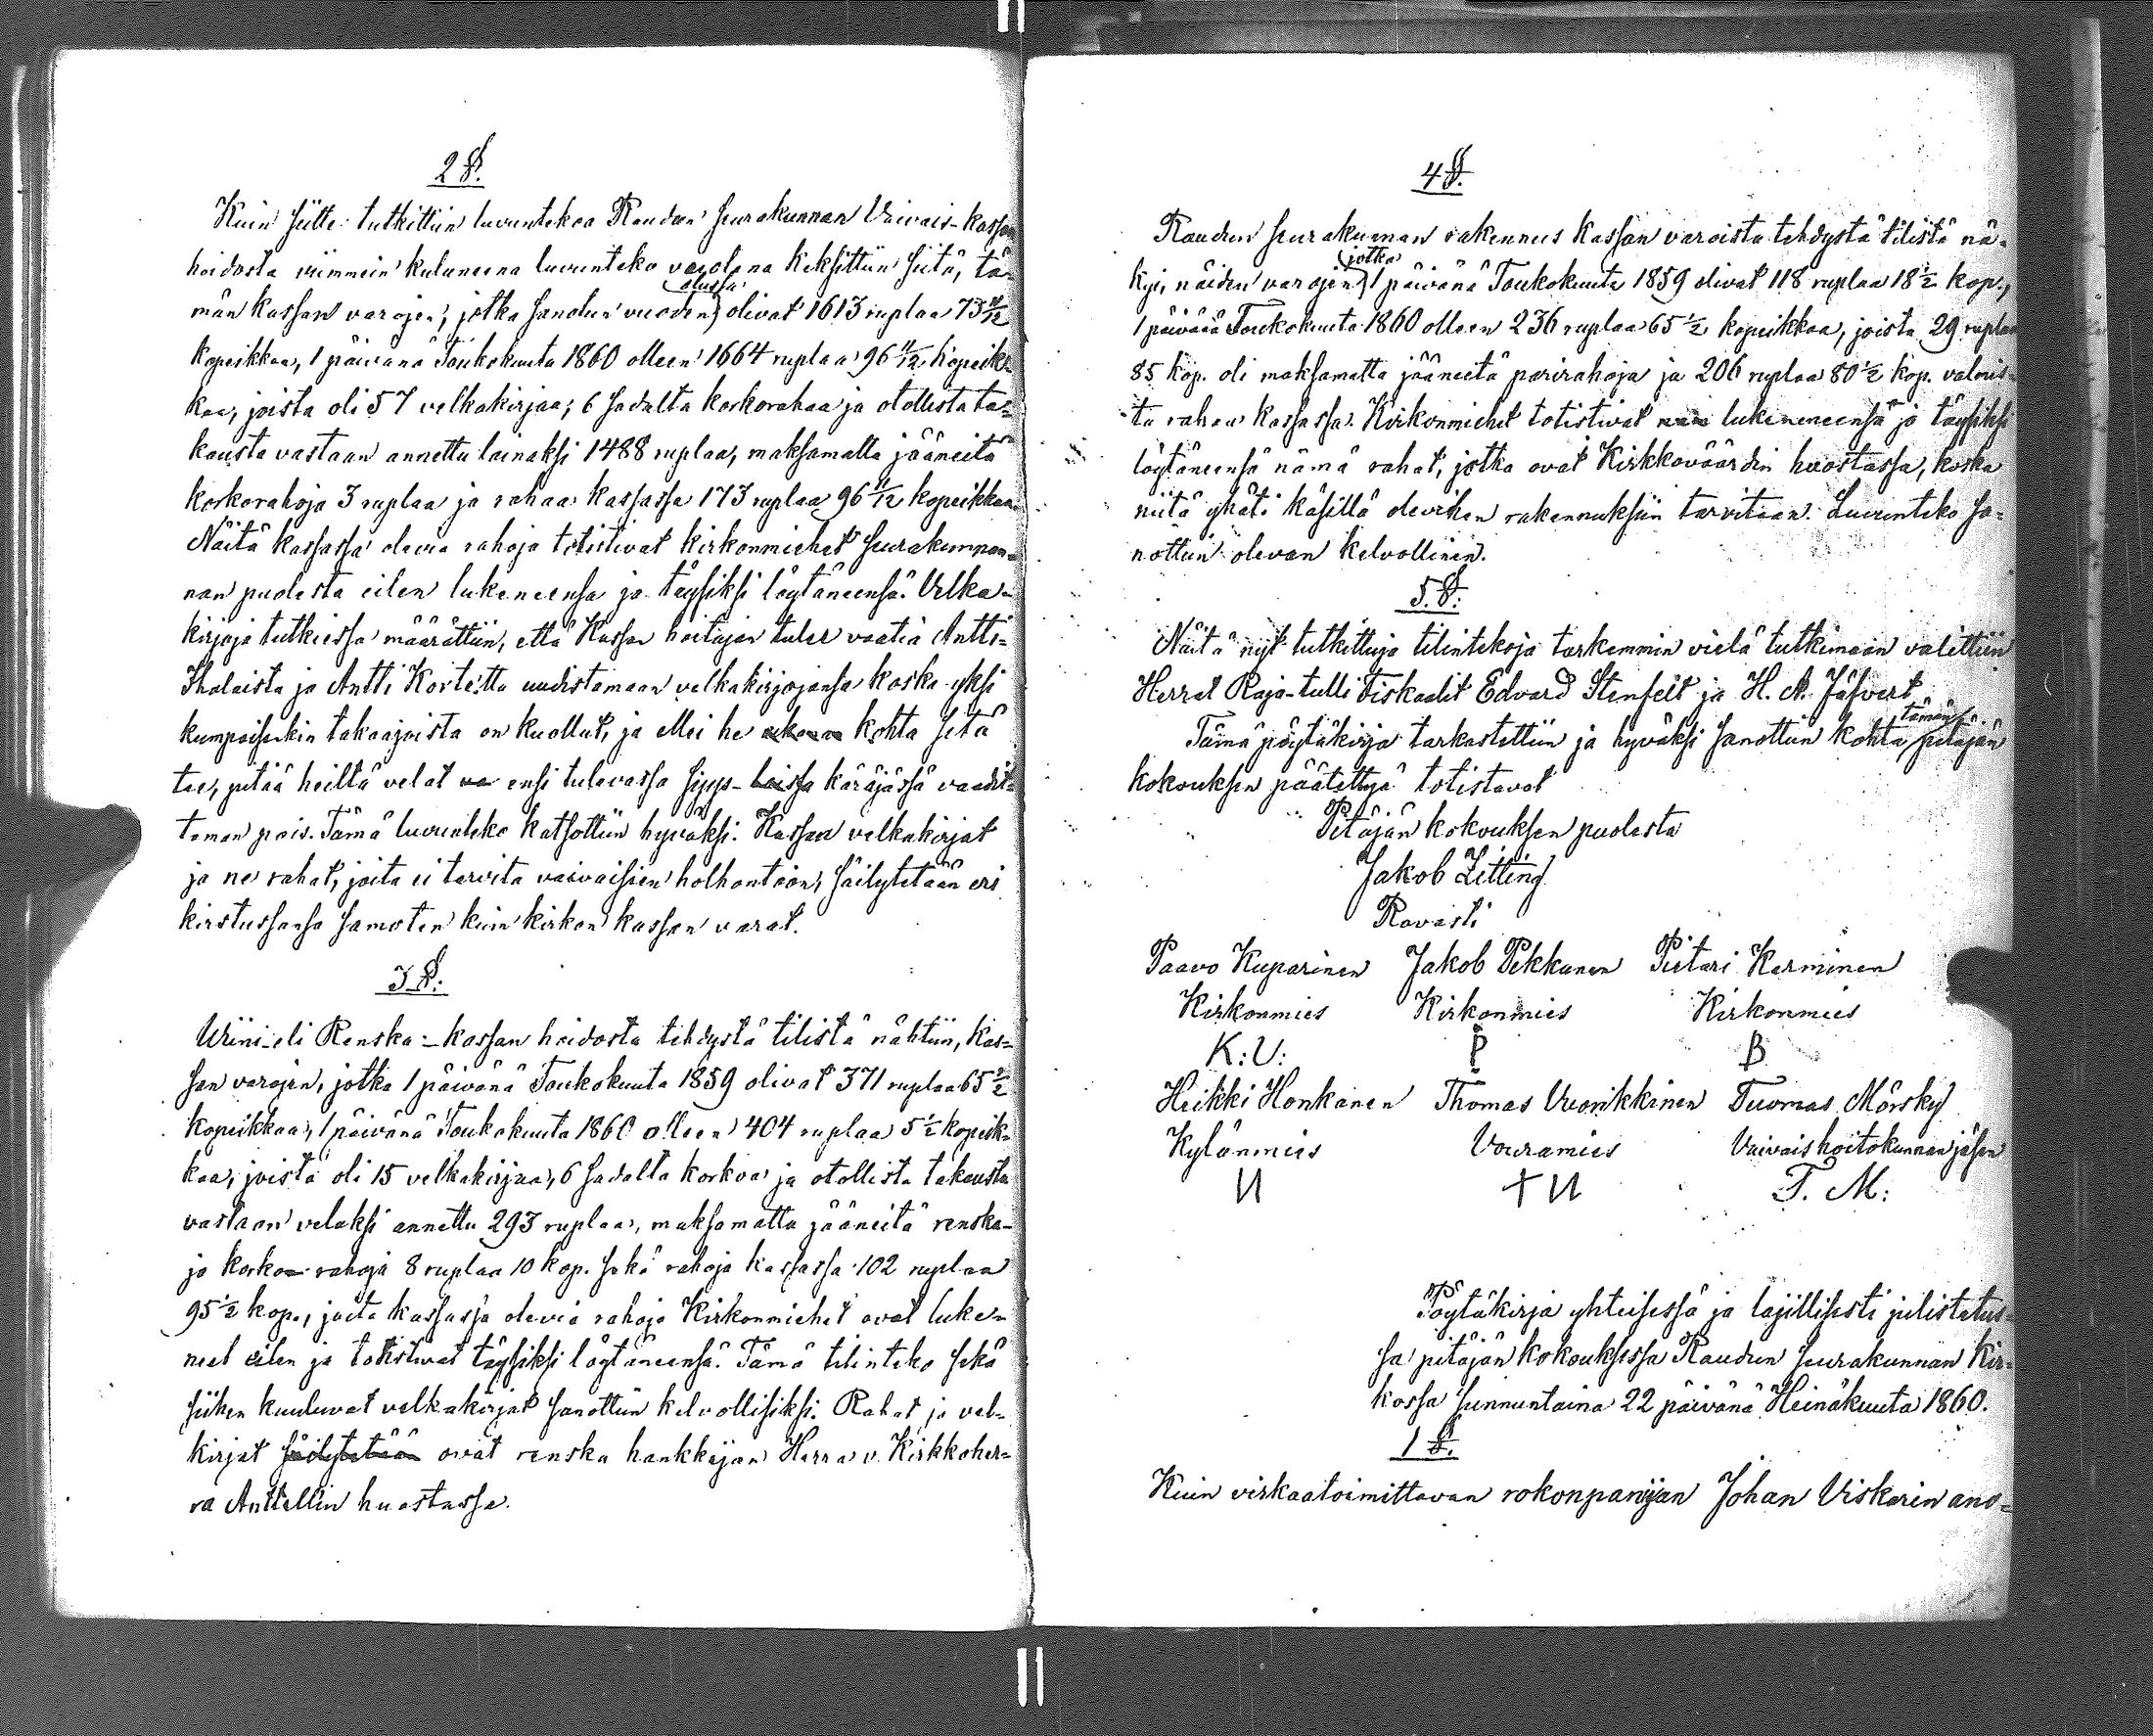 2 §.
Kuin siitte tutkittiin luvuntekoa Raudun seurakunnan Vaivais-kassan
hoidosta viimmein kuluneena luvunteko vuotena keksittiin siitä, tä-
män kassan varojen, jotka sanotun vuoden alussa olivat 1613 ruplaa 73 11/12
kopeikkaa, 1 päivänä Toukokuuta 1860 olleen 1664 ruplaa 96 11/12 kopeik-
kaa, joista oli 57 velkakirjaa, 6 sadalta korkorahaa ja otollista ta-
kausta vastaan annettu lainaksi 1488 ruplaa, maksamatta jääneitä
korkorahoja 3 ruplaa ja rahaa kassassa 173 ruplaa 96 11/12 kopeikkaa.
Näitä kassassa olevia rahoja totistivat kirkonmiehet seurakunnan-
nan puolesta eilen lukeneensa ja täysiksi löytäneensä. Velka-
kirjoja tutkiessa määrättiin, että Kassan hoitajan tulee vaatia Antti-
Ihalaista ja Antti Kortetta uudistamaan velkakirjojansa koska yksi
kumpaisenkin takaajoista on kuollut, ja ellei he kohta sitä
tee, pitää heiltä velat ensi tulevassa syys- käräjässä vaadit-
taman pois. Tämä luvunteko katsottiin hyväksi. Kassan velkakirjat
ja ne rahat, joita ei tarvita vaivaisien holhontaan, säilytetään eri
kirstussansa samoten kuin kirkon kassan varat.
3 §.
Viini- eli Renska-kassan hoidosta tehdystä tilistä nähtiin, kas-
san varojen, jotka 1 päivänä Toukokuuta 1859 olivat 371 ruplaa 65 1/2
kopeikkaa, 1 päivänä Toukokuuta 1860 olleen 404 ruplaa 5 1/2 kopeik-
kaa, joista oli 15 velkakirjaa, 6 sadalta korkoa ja otollista takausta
vastaan velaksi annettu 293 ruplaa, maksamatta jääneitä renska-
ja korko rahoja 8 ruplaa 10 kop. sekä rahoja kassassa 102 ruplaa
95 1/2 kop., joita kassassa olevia rahoja Kirkonmiehet ovat luke-
neet eilen ja totistivat täysiksi löytäneensä. Tämä tilinteko sekä
siihen kuuluvat velkakirjat sanottiin kelvollisiksi. Rahat ja vel-
kirjat säilytetään ovat renska hankkijan Herra v. Kirkkoher-
ra Anttellin huostassa.
4 §.
Raudun seurakunnan rakennus kassan varoista tehdystä tilistä nä-
kyi, näiden varojen, jotka 1 päivänä Toukokuuta 1859 olivat 118 ruplaa 18 1/2 kop.,
1 päivänä Toukokuuta 1860 olleen 236 ruplaa 65 1/2 kopeikkaa, joista 29 ruplaa
85 kop. oli maksamatta jääneitä parirahoja ja 206 ruplaa 80 1/2 kop. valmis-
ta rahaa kassassa. Kirkonmiehet totistivat lukeneneensä ja täysiksi
löytäneensä nämä rahat, jotka ovat Kirkkoväärdin huostassa, koska
niitä yhäti käsillä olevihen rakennuksiin tarvitaan. Luvunteko sa-
nottiin olevan kelvollinen.
5. §.
Näitä nyt tutkittuja tilintekoja tarkemmin vielä tutkimaan valittiin
Herrat Raja-tulli Fiskaalit Edvard Stenfelt ja H. A. Jäfvert.
Tämä pöytäkirja tarkastettiin ja hyväksi sanottiin kohta tämän pitäjän
kokouksen päätettyä totistavat
Pitäjän kokouksen puolesta
Jakob Zitting
Rovasti
Paavo Kuparinen Jakob Pekkanen Pietari Karminen
Kirkonmies Kirkonmies Kirkonmies
K: V: P B
Heikki Honkanen Thomas Vuorikkinen Tuomas Mörsky
Kylänmies Vouramies Vaivaishoitokunnan jäsen
И + И T. M:
Pöytäkirja yhteisessä ja lajillisesti julistetus-
sa pitäjän kokouksessa Raudun seurakunnan kir-
kossa sunnuntaina 22 päivänä Heinäkuuta 1860.
1 §.
Kuin virkaatoimittavan rokonpanijan Johan Viskarin ano-